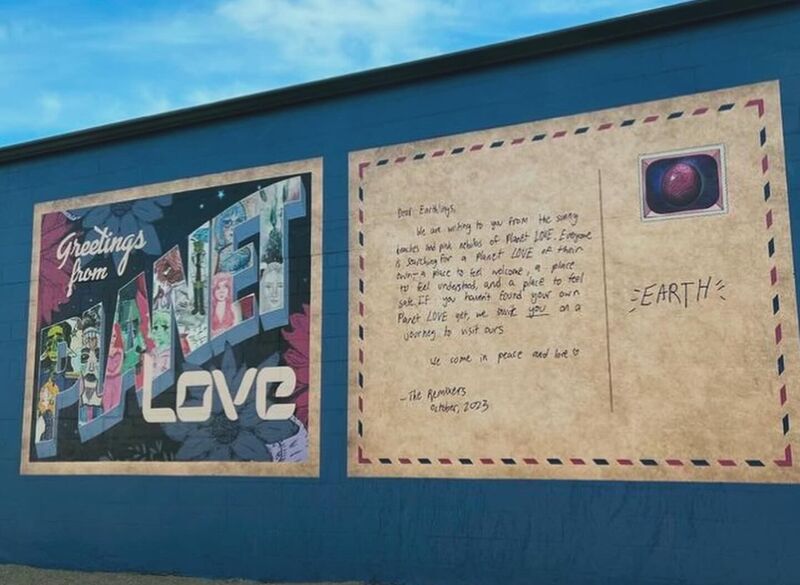 Greetings
from
PLANET
LOVE
Dear Earthlings,
We are writing to you from the sunny
beaches and pink nebulas of Planet LOVE. Everyone
is searching for a Planet LOVE of their
own—a place to feel welcome, a place
to feel understood, and a place to feel
safe. If you haven't found your own
Planet LOVE yet, we invite you on a
journey to visit ours
We come in peace and love
—The Remixers
October, 2023
EARTH